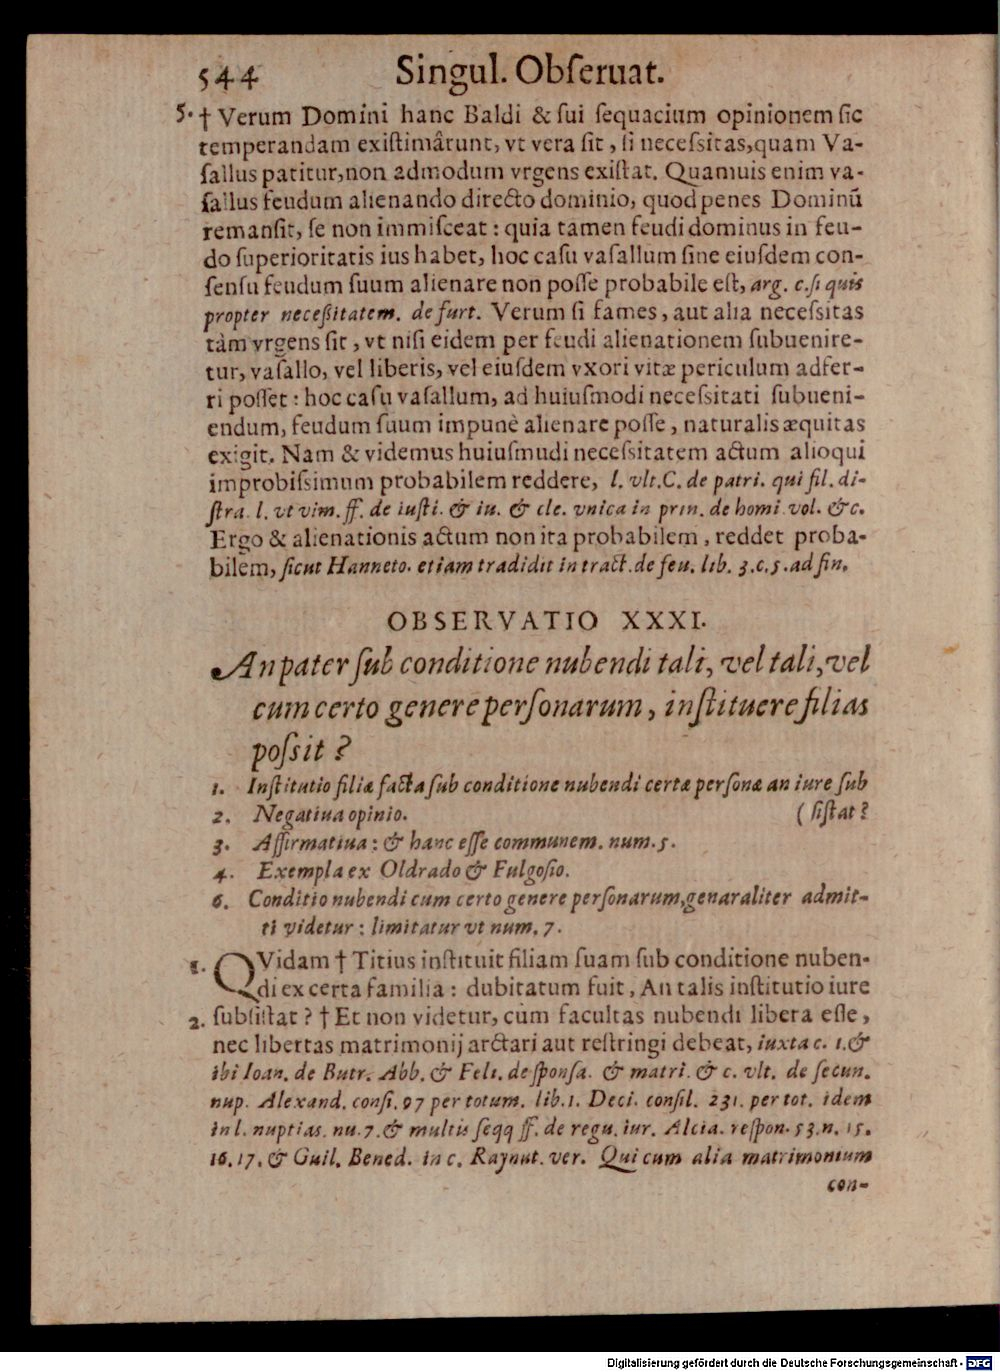 544 Singul. Obſeruat.
5. † Verum Domini hanc Baldi & ſui ſequacium opinionem ſic
temperandam exiſtimârunt, vt vera ſit, ſi neceſsitas, quam Va-
ſallus patitur, non admodum vrgens exiſtat. Quamuis enim va-
ſallus feudum alienando directo dominio, quod penes Dominũ
remanſit, ſe non immiſceat : quia tamen feudi dominus in feu-
do ſuperioritatis ius habet, hoc caſu vaſallum ſine eiuſdem con-
ſenſu feudum ſuum alienare non poſſe probabile eſt, arg. c. ſi quis
propter neceßitatem. de furt. Verum ſi fames, aut alia neceſsitas
tàm vrgens ſit, vt niſi eidem per feudi alienationem ſubuenire-
tur, vaſallo, vel liberis, vel eiuſdem vxori vitæ periculum adfer-
ri poſſet : hoc caſu vaſallum, ad huiuſmodi neceſsitati ſubueni-
endum, feudum ſuum impunè alienare poſſe, naturalis æquitas
exigit. Nam & videmus huiuſmudi neceſsitatem actum alioqui
improbiſsimum probabilem reddere, l. vlt. C. de patri. qui fil. di-
ſtra. l. vt vim. ff. de iuſti. & iu. & cle. vnica in prin. de homi vol. &c.
Ergo & alienationis actum non ita probabilem, reddet proba-
bilem, ſicut Hanneto. etiam tradidit in tract. de feu. lib. 3. c. 5. ad fin.
OBSERVATIO XXXI.
An pater ſub conditione nubendi tali, vel tali, vel
cum certo genere perſonarum, inſtituere filias
poſsit ?
1. Inſtitutio filiæ facta ſub conditione nubendi certæ perſonæ an iure ſub
2. Negatiua opinio. ( ſiſtat ?
3. Affirmatiua : & hanc eſſe communem. num. 5.
4. Exempla ex Oldrado & Fulgoſio.
6. Conditio nubendi cum certo genere perſonarum, genaraliter admit-
ti videtur : limitatur vt num. 7.
1. QVidam † Titius inſtituit filiam ſuam ſub conditione nuben-
di ex certa familia : dubitatum fuit, An talis inſtitutio iure
2. ſubſiſtat ? † Et non videtur, cùm facultas nubendi libera eſſe,
nec libertas matrimonij arctari aut reſtringi debeat, iuxta c. 1. &
ibi Ioan. de Butr. Abb. & Feli. de ſponſa. & matri. & c. vlt. de ſecun.
nup. Alexand. conſi. 97 per totum. lib. 1. Deci. conſil. 231. per tot. idem
in l. nuptias. nu. 7. & multis ſeqq ff. de regu. iur. Alcia. reſpon. 53. n. 15.
16. 17. & Guil. Bened. in c. Raynut. ver. Qui cum alia matrimonium
con-
Digitalisierung gefördert durch die Deutsche Forschungsgemeinschaft - DFG